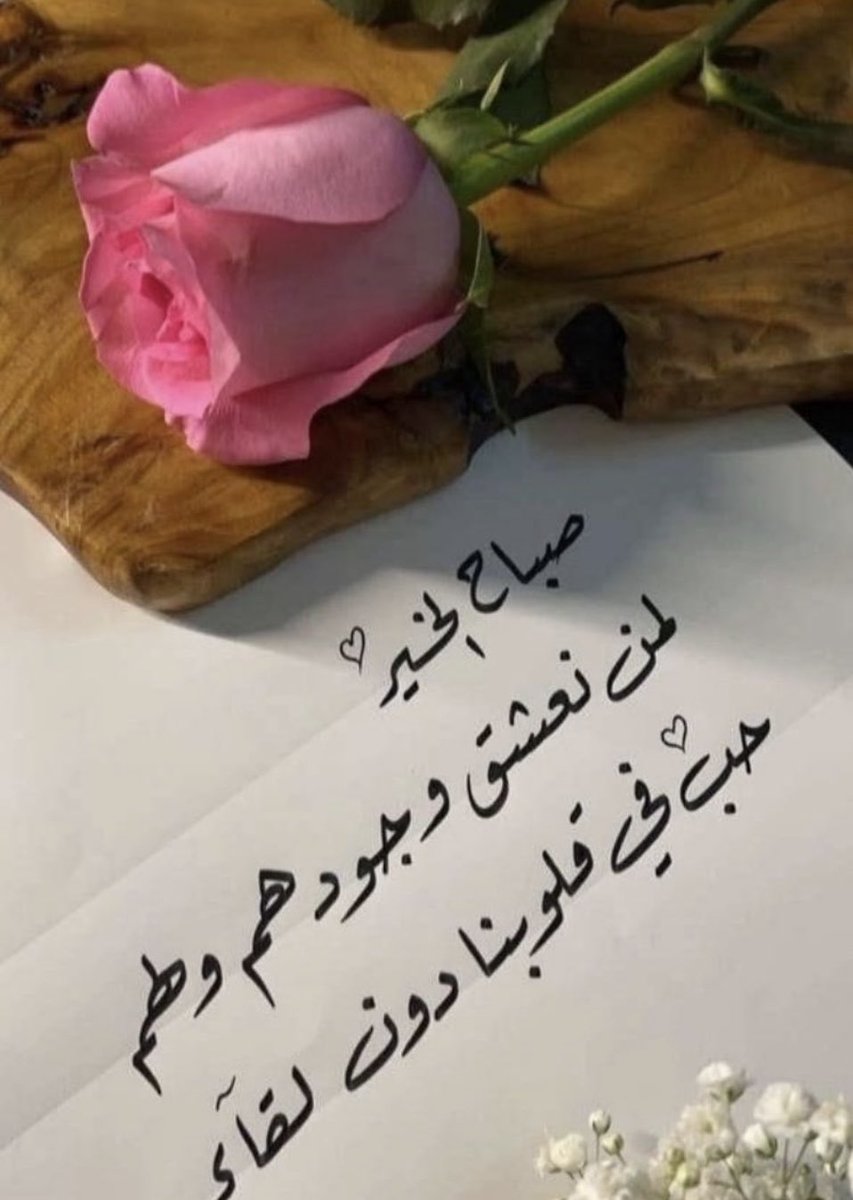 صباح الخير ♡
لمن نعشق وجودهم ولهم
حب ♡ في قلوبنا دون لقآء